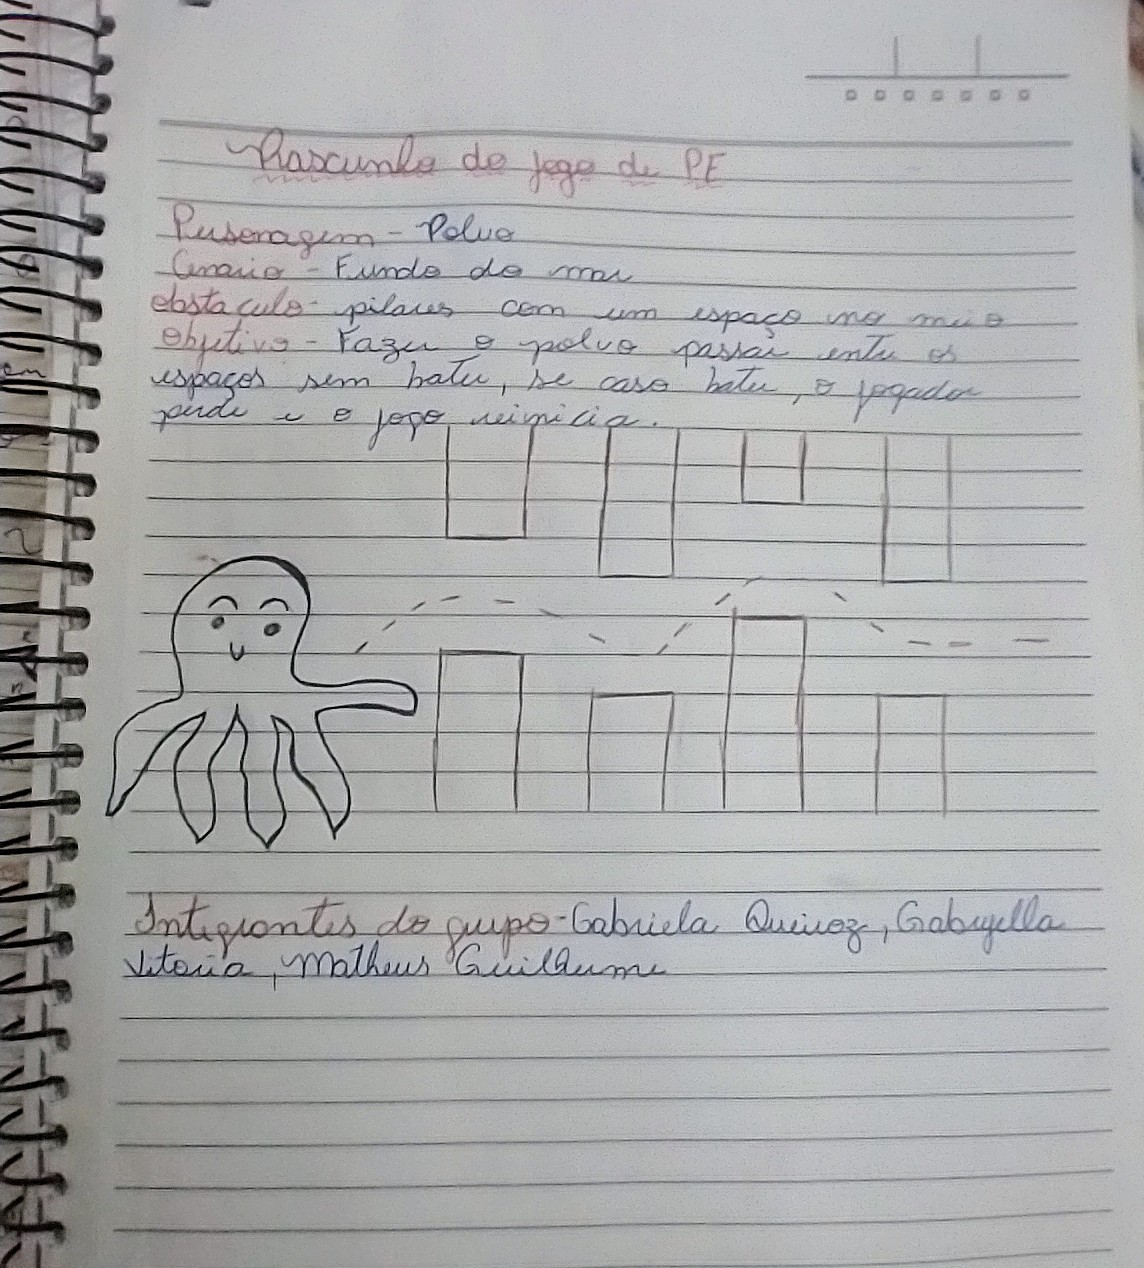 Rascunho do jogo de PE
Personagem - Polvo
Cenario - Fundo do mar
obstaculo - pilares com um espaço no meio
objetivo - Fazer o polvo passar entre os
espaços sem bater, se caso bater, o jogador
perde e o jogo reinicia.
Integrantes do grupo - Gabriela Queiroz, Gabryella
Vitoria, Matheus Guilherme